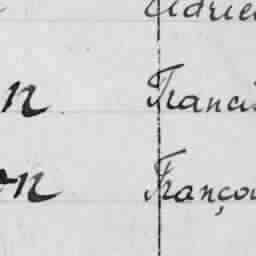 Adrie
n Franci
on Françoi